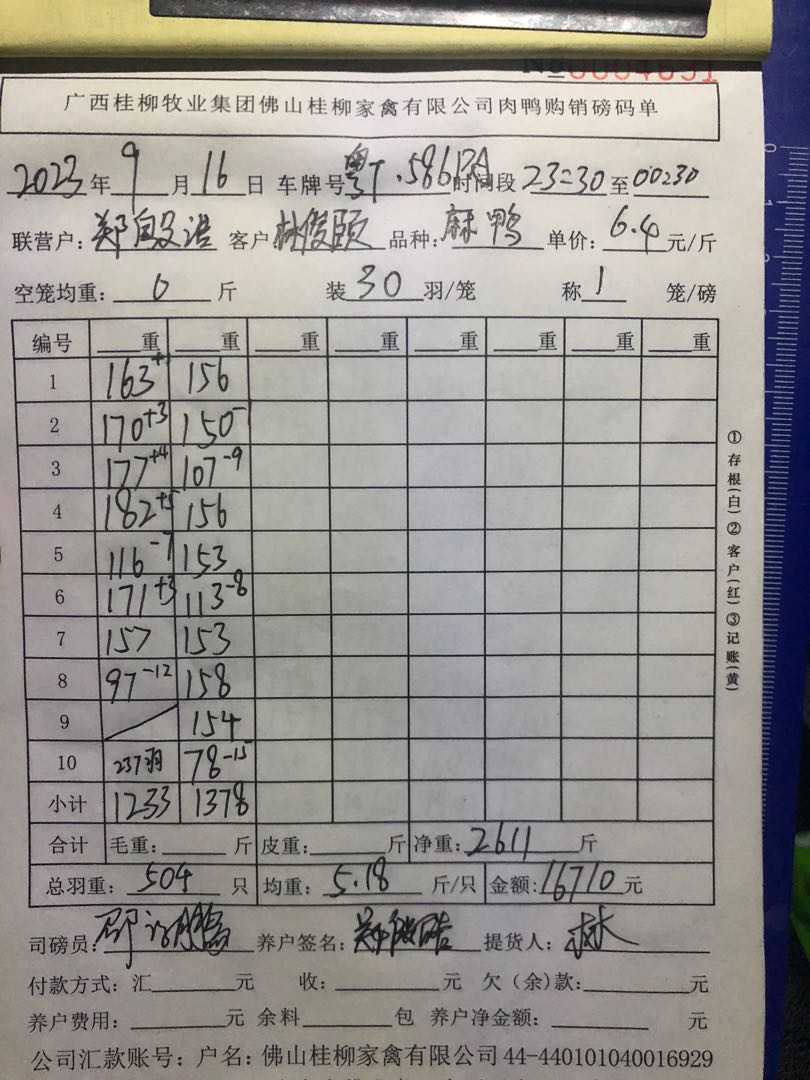 No 0004691
广西桂柳牧业集团佛山桂柳家禽有限公司肉鸭购销磅码单
2023年 9 月 16 日 车牌号粤T.586DA时间段 23:30 至 00:30
联营户: 郑 浩 客户 林俊颐 品种: 麻鸭 单价: 6.4 元/斤
空笼均重: 0 斤 装 30 羽/笼 称 1 笼/磅
编号 重 重 重 重 重 重 重 重
1 163+ 156
2 170+3 150-
3 177+4 107-9
4 182+5 156
5 116-7 153
6 171+3 113-8
7 157 153
8 97-12 158
9 / 154
10 237羽 78-15
小计 1233 1378
合计 毛重: 斤 皮重: 斤 净重: 2611 斤
总羽重: 504 只 均重: 5.18 斤/只 金额: 16710 元
司磅员: 养户签名: 郑 提货人: 林
付款方式: 汇 元 收: 元 欠(余)款: 元
养户费用: 元 余料 包 养户净金额: 元
公司汇款账号: 户名: 佛山桂柳家禽有限公司 44-440101040016929
①存根(白)②客户(红)③记账(黄)